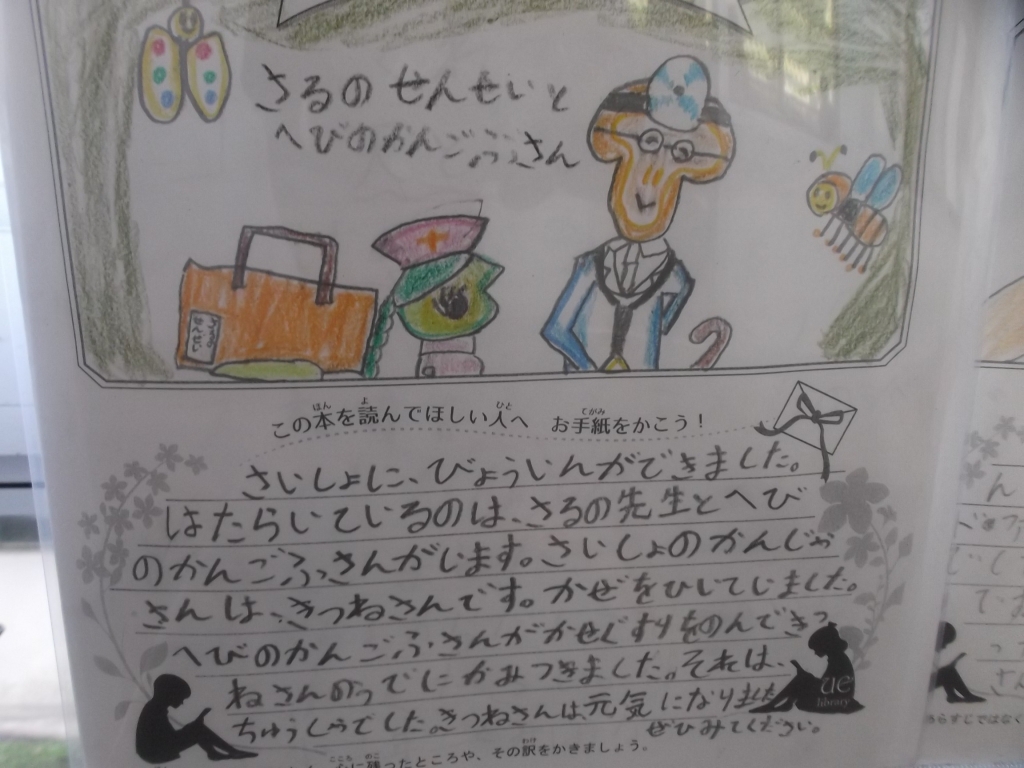 さるのせんせいと
へびのかんごふさん
この本を読んでほしい人へ お手紙をかこう!
さいしょに、びょういんができました。
はたらいているのは、さるの先生とへび
のかんごふさんがします。さいしょのかんじゃ
さんは、きつねさんです。かぜをひいてしました。
へびのかんごふさんがかぜぐすりをのんできつ
ねさんのうでにかみつきました。それは、
ちゅうしゃでした。きつねさんは、元気になりました
ぜひみてください。
ue
library
に残ったところや、その訳をかきましょう。